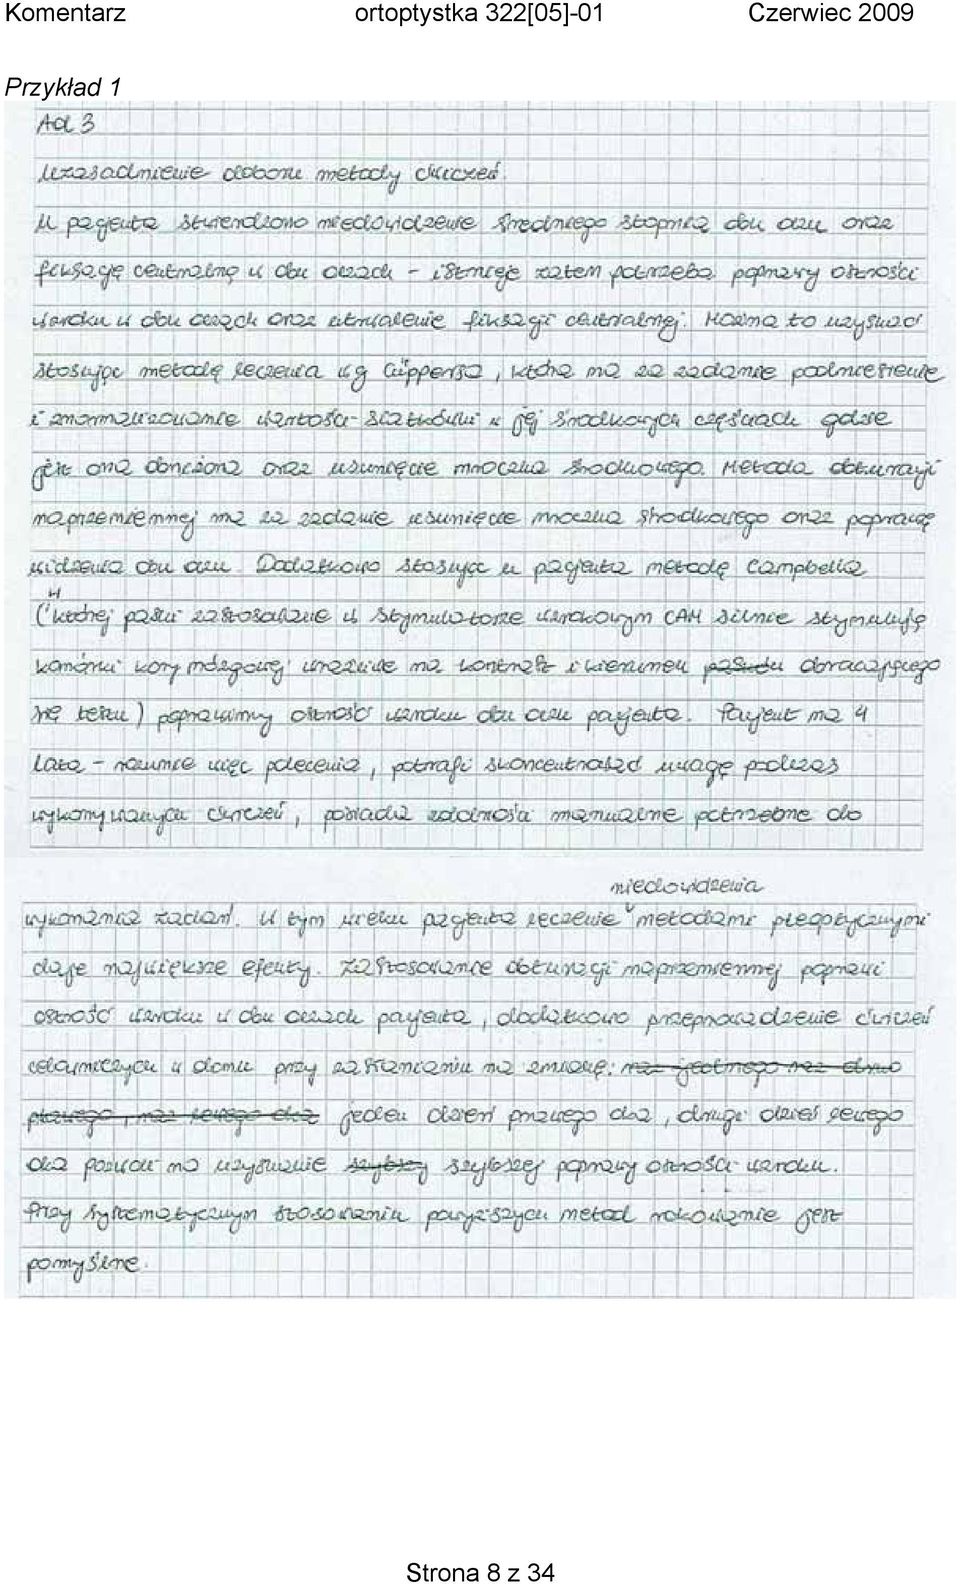 Komentarz ortoptystka 322[05]-01 Czerwiec 2009
Przykład 1
Ad 3
Uzasadnienie doboru metody ćwiczeń.
U pacjenta stwierdzono niedowidzenie średniego stopnia obu oczu oraz
fiksację centralną w obu oczach - istnieje zatem potrzeba poprawy ostrości
wzroku w obu oczach oraz utrwalenie fiksacji centralnej. Można to uzyskać
stosując metodę leczenia wg Cüppersa, która ma za zadanie podniesienie
i znormalizowanie wartości siatkówki w jej środkowych częściach gdzie
jest ona obniżona oraz usunięcie mroczka środkowego. Metoda obturacji
naprzemiennej ma za zadanie usunięcie mroczka środkowego oraz poprawę
widzenia obu oczu. Dodatkowo stosując u pacjenta metodę Campbella
(w której paski zastosowanie w stymulatorze wzrokowym CAM silnie stymulują
komórki kory mózgowej wrażliwe na kontrast i kierunek pasku obracającego
się testu) poprawimy ostrość wzroku obu oczu pacjenta. Pacjent ma 4
lata - rozumie więc polecenia, potrafi skoncentrować uwagę podczas
wykonywanych ćwiczeń, posiada zdolności manualne potrzebne do
wykonania zadań. W tym wieku pacjenta leczenie niedowidzenia metodami pleoptycznymi
daje największe efekty. Zastosowanie obturacji naprzemiennej poprawi
ostrość wzroku w obu oczach pacjenta, dodatkowo przeprowadzenie ćwiczeń
celowniczych w domu przy zasłanianiu na zmianę: raz jednego raz drugiego
prawego, raz lewego oka jeden dzień prawego oka, drugi dzień lewego
oka pozwoli na uzyskanie szybszej szybszej poprawy ostrości wzroku.
Przy systematycznym stosowaniu powyższych metod rokowanie jest
pomyślne.
Strona 8 z 34